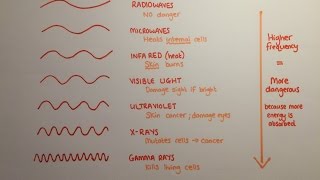 RADIOWAVES
No danger
MICROWAVES
Heats internal cells
INFA RED (heat)
Skin burns
VISIBLE LIGHT
Damage sight if bright
ULTRAVIOLET
Skin cancer; damage eyes
X-RAYS
Mutates cells → cancer
GAMMA RAYS
Kills living cells
Higher
frequency
=
More
dangerous
because more
energy is
absorbed